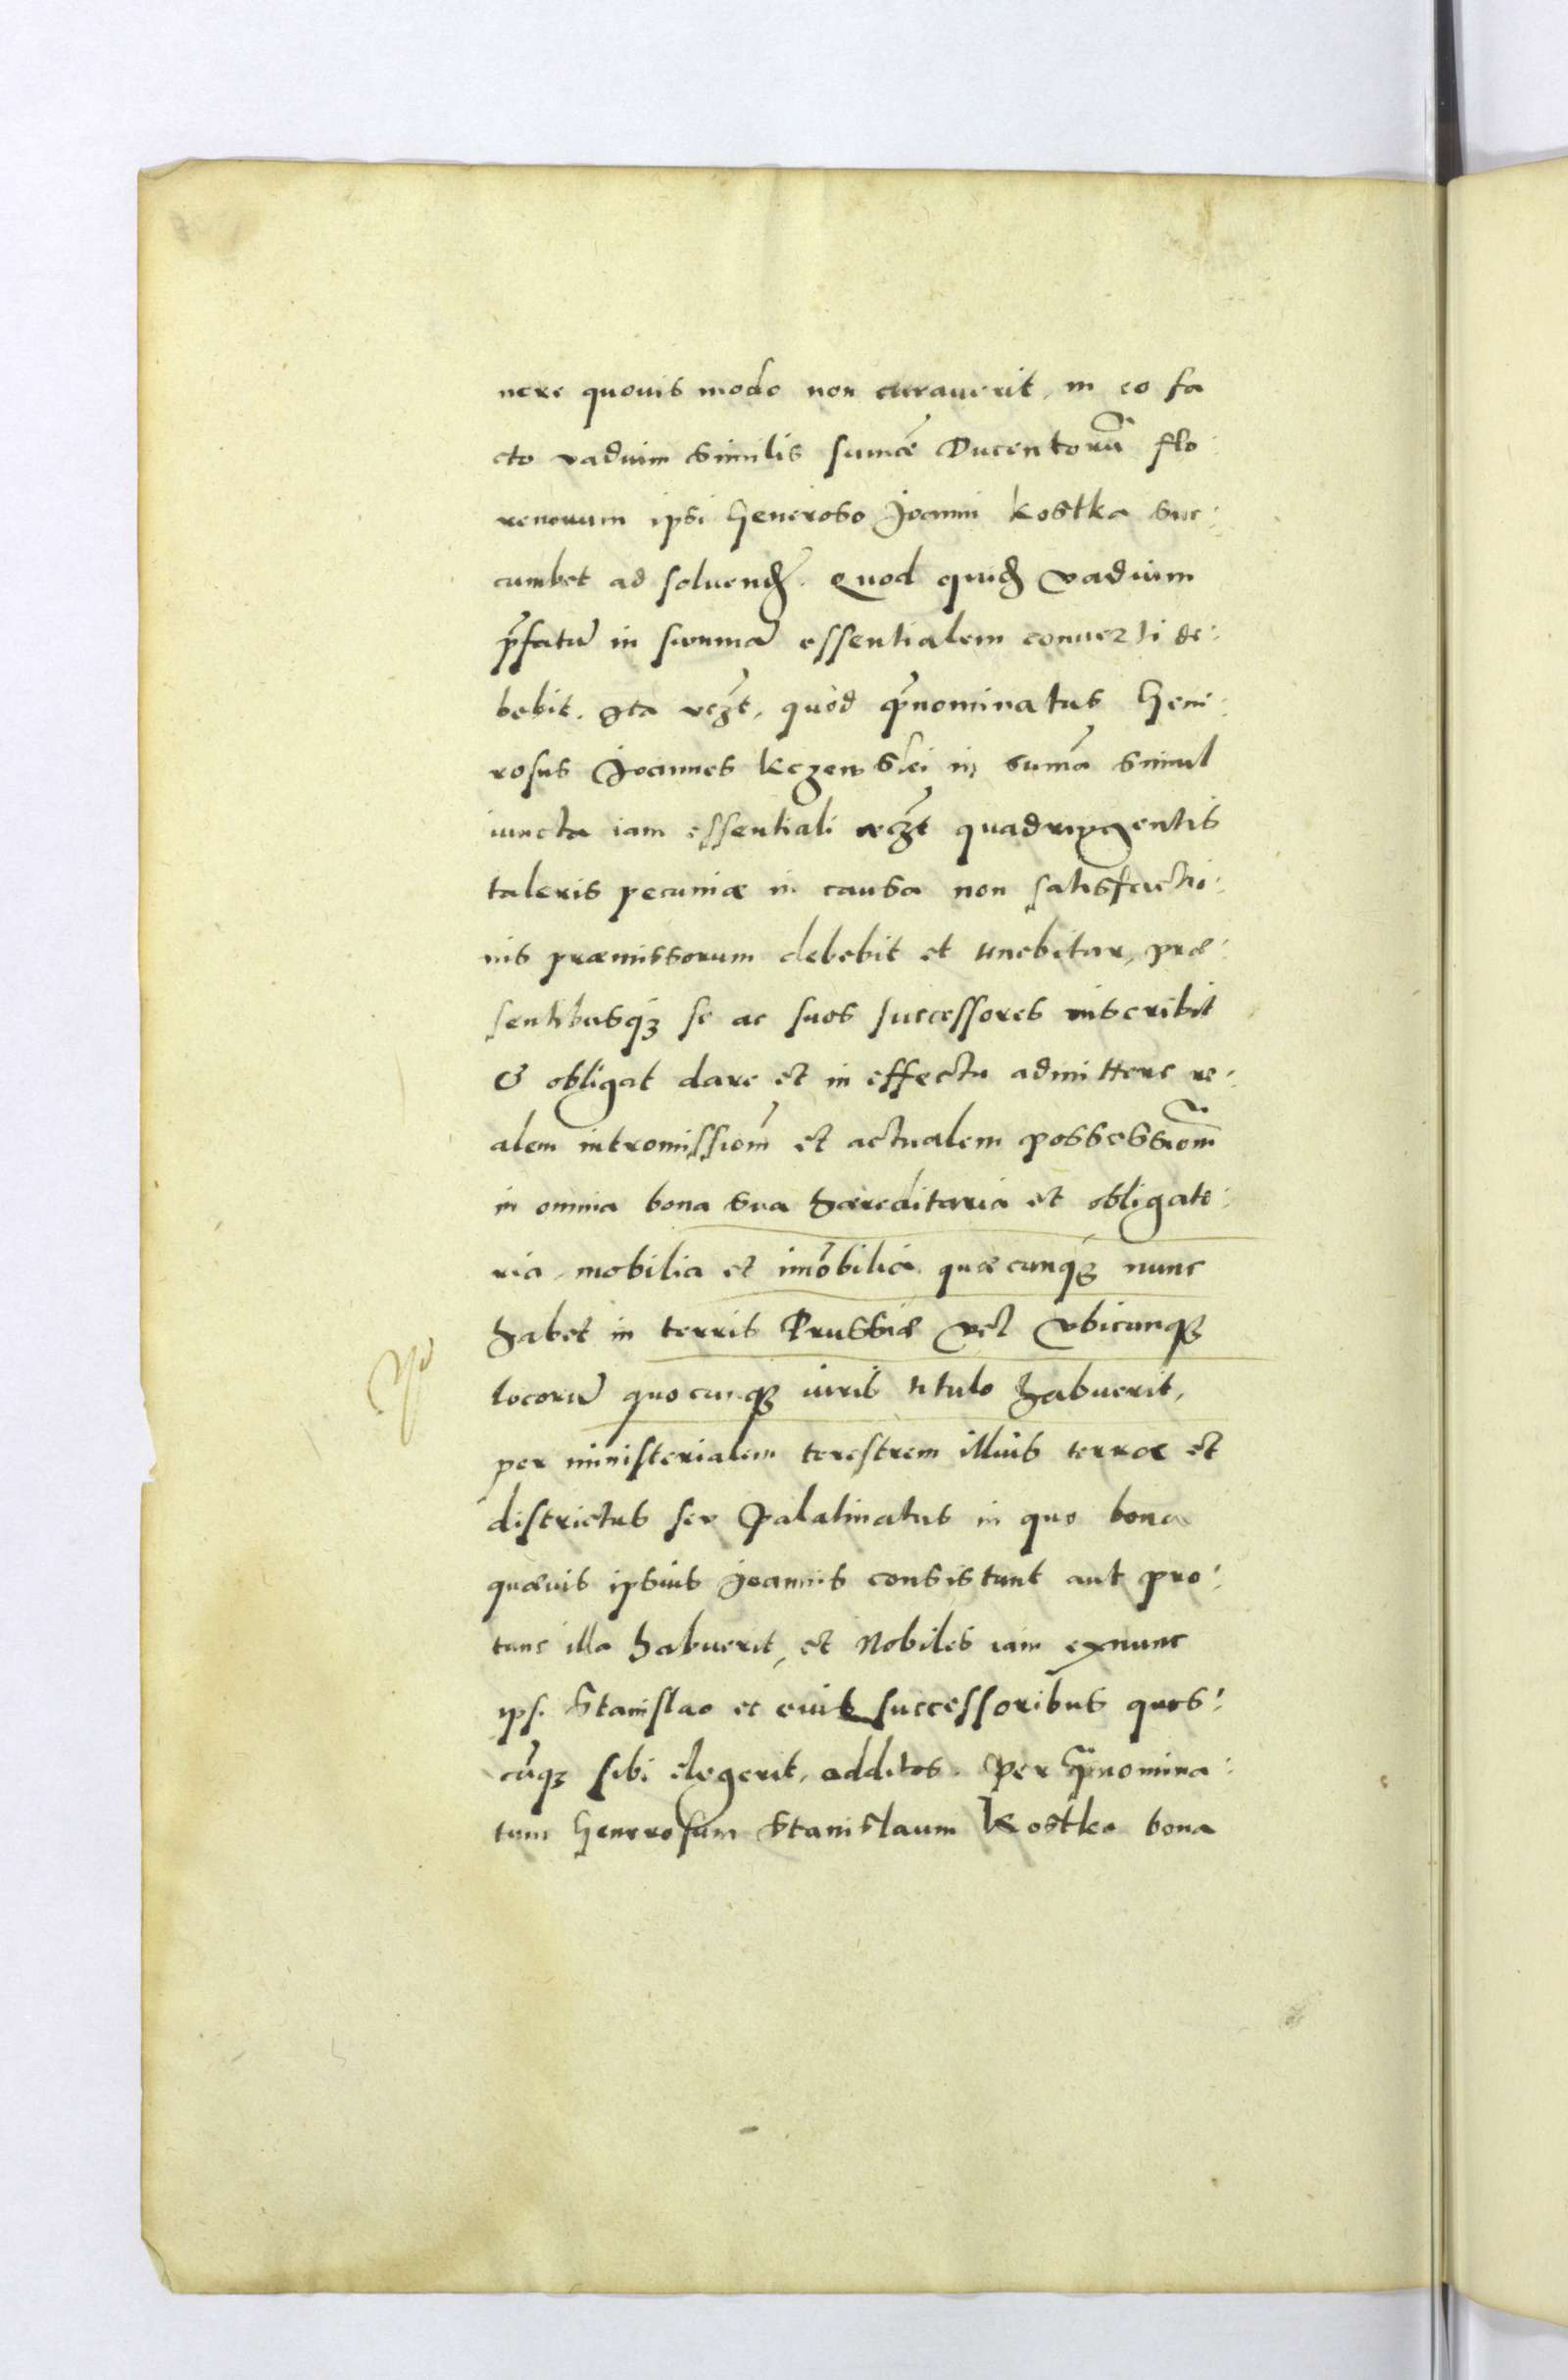 nere quouis modo non curauerit, in eo fa
cto vadium similis sumæ Ducentorū flo:
renorum ipsi Generoso Joanni Kostka suc:
cumbet ad soluend. Quod quid vadium
p̄fatū in summā essentialem conuerti de:
bebit. Ita vczt, quòd p̄nominatus Gene:
rosus Joannes Kczewski in sumā simul
iuncta iam essentiali vczt quadringentis
taleris pecuniæ in causa non satisfactio:
nis præmissorum debebit et tenebitur, præ:
sentibusq; se ac suos successores inscribit
& obligat dare et in effectu admittere re:
alem intromissiom̄ et actualem possessiom̄
in omnia bona sua hæreditaria et obligato:
ria, mobilia et im̄obilia quæcunq; nunc
habet in terris Prussiæ vel vbicunq;
locorū quocunq; iuris titulo habuerit,
per ministerialem terestrem illius terræ et
districtus seu Palatinatus in quo bona
quæuis ipsius Joannis consistunt aut pro:
tunc illa habuerit, et Nobiles iam exnunc
ipsi Stanislao et eius successoribus quos:
cūq; sibi elegerit, additos. Per p̄nomina:
tum Generosum Stanislaum Kostka bona